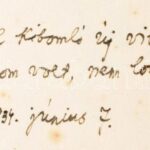 kibomló új vi
om volt, nem lo
934. június 7.